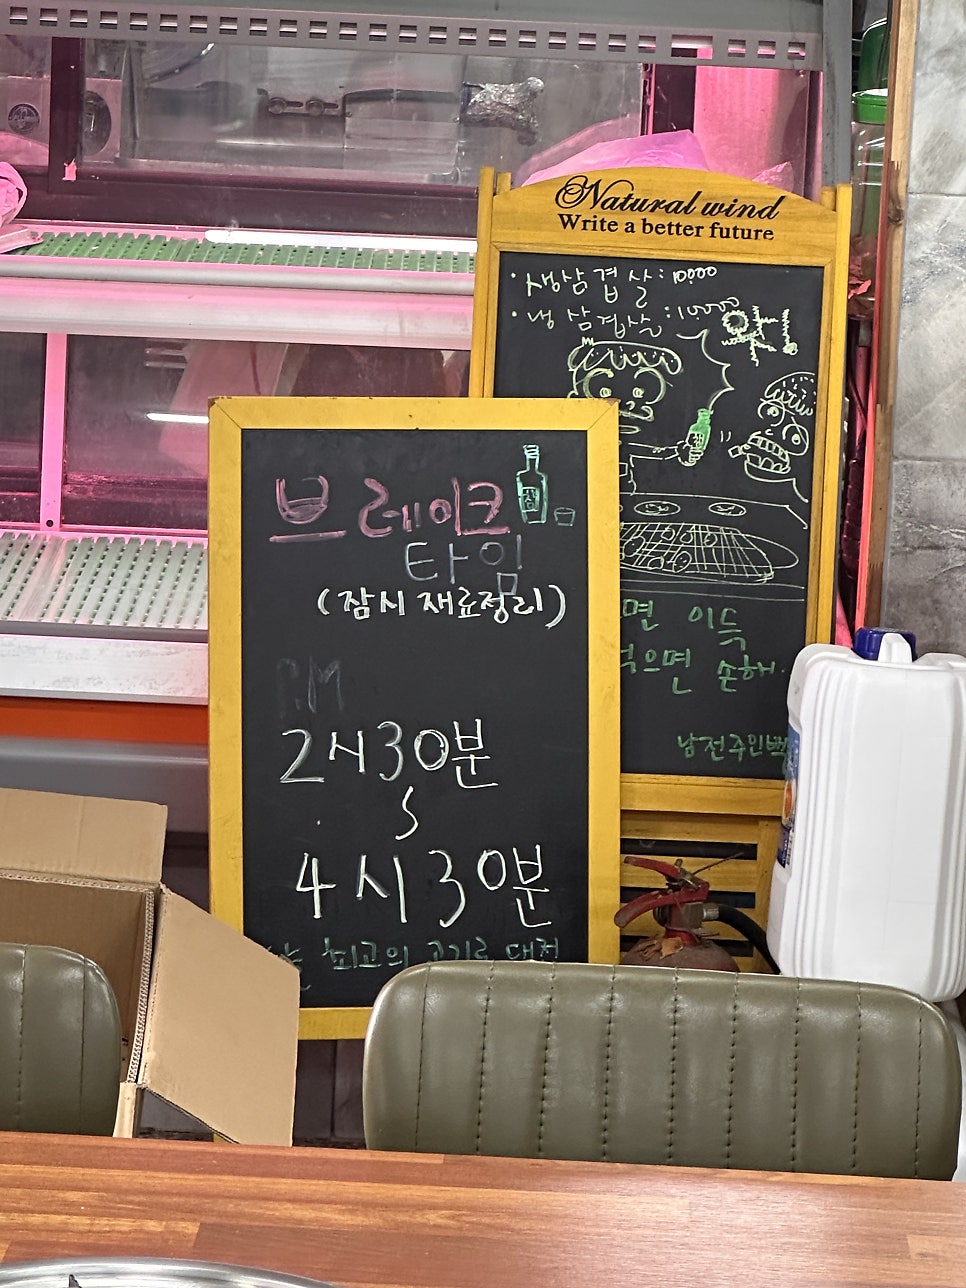 Natural wind
Write a better future
· 생삼겹살 : 10000
· 냉삼겹살 : 10000
면 이득
먹으면 손해.
남전주인백
브레이크
타임
(잠시 재료정리)
P.M
2시30분
~
4시30분
최고의 고기로 대접